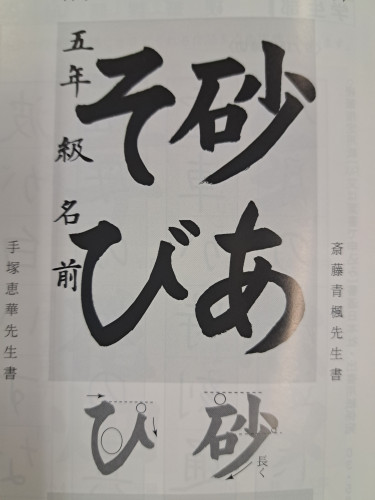 斎藤青楓先生書
砂あ
そび
五年 級 名前
手塚恵華先生書
砂
長く
び